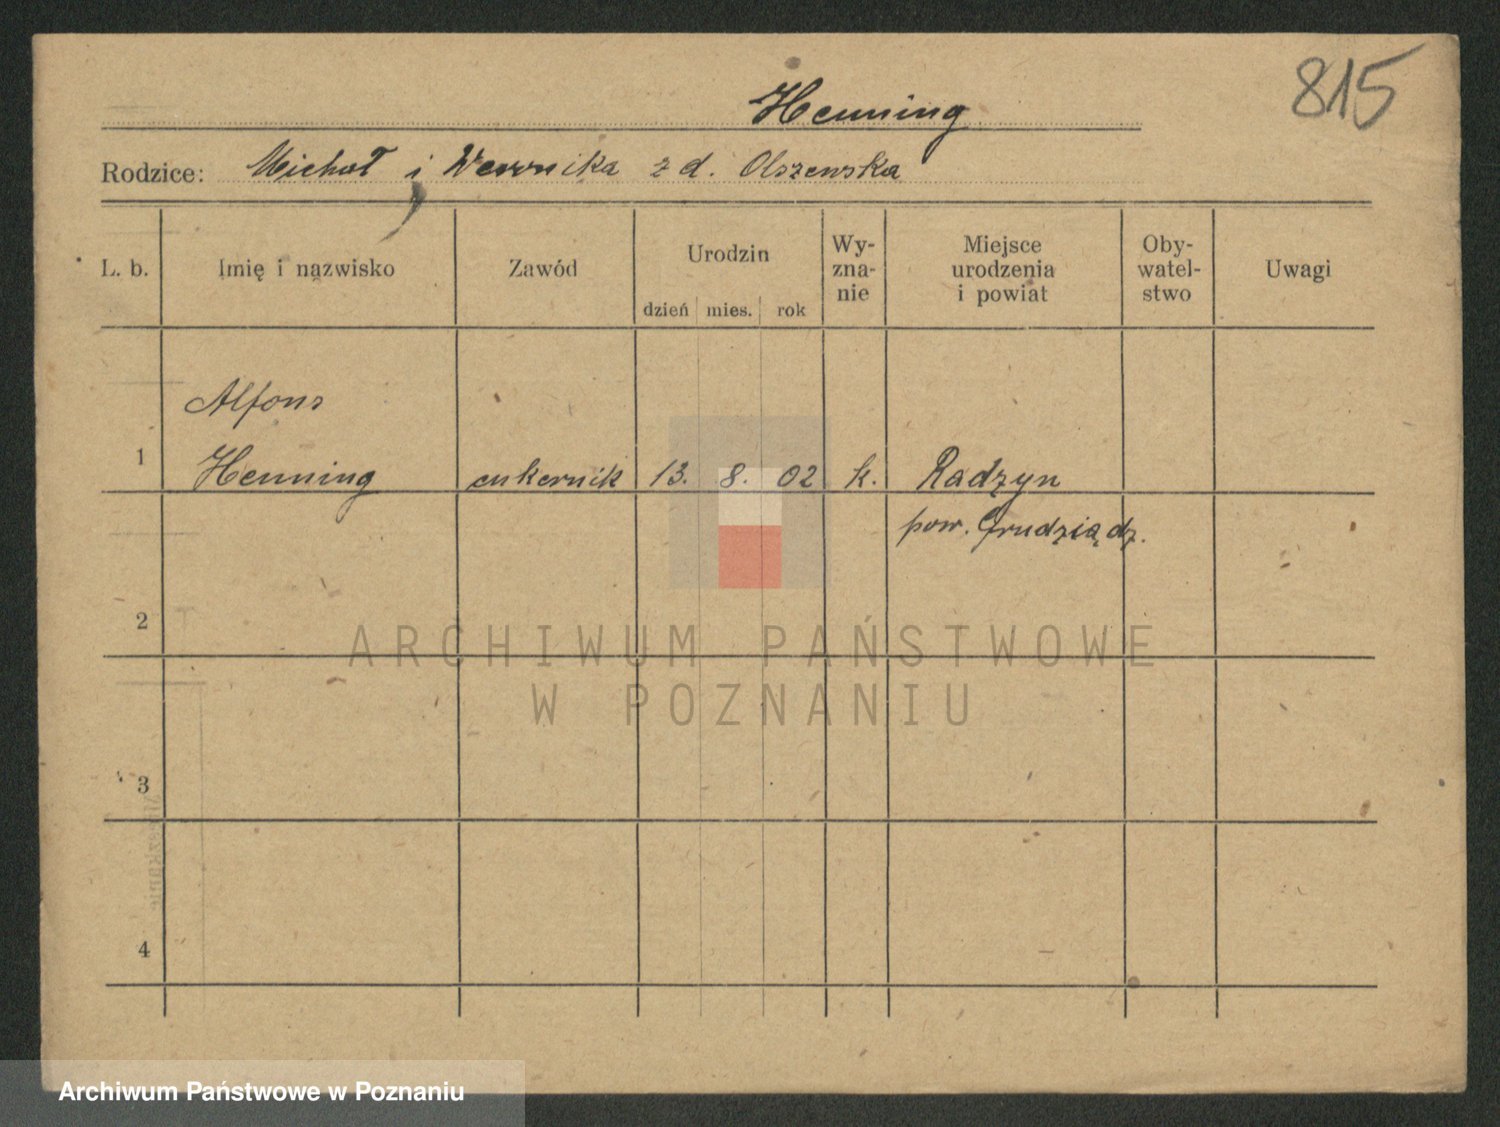 815
Henning
Rodzice: Michał i Weronika z d. Olszewska
L. b.
Imię i nazwisko
Zawód
Urodzin
dzień mies. rok
Wy-
zna-
nie
Miejsce
urodzenia
i powiat
Oby-
watel-
stwo
Uwagi
Alfons
1 Henning cukiernik 13. 8. 02 k. Radzyn
pow. Grudziądz.
2
3
4
ARCHIWUM PAŃSTWOWE
W POZNANIU
Archiwum Państwowe w Poznaniu